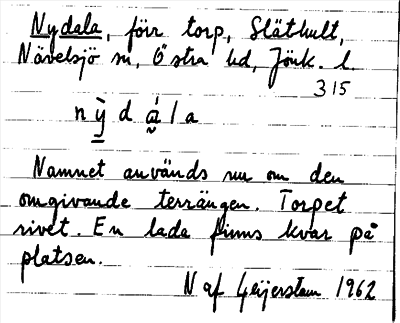 Nydala, förr torp, Släthult,
Nävelsjö sn, Östra hd, Jönk. l.
315
n ỳ d á l a
Namnet används nu om den
omgivande terrängen. Torpet
rivet. En lada finns kvar på
platsen.
N af Geijerstam 1962